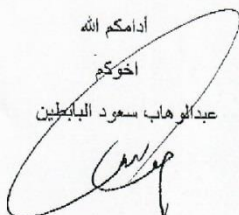 أدامكم الله
اخوكم
عبدالوهاب سعود البابطين